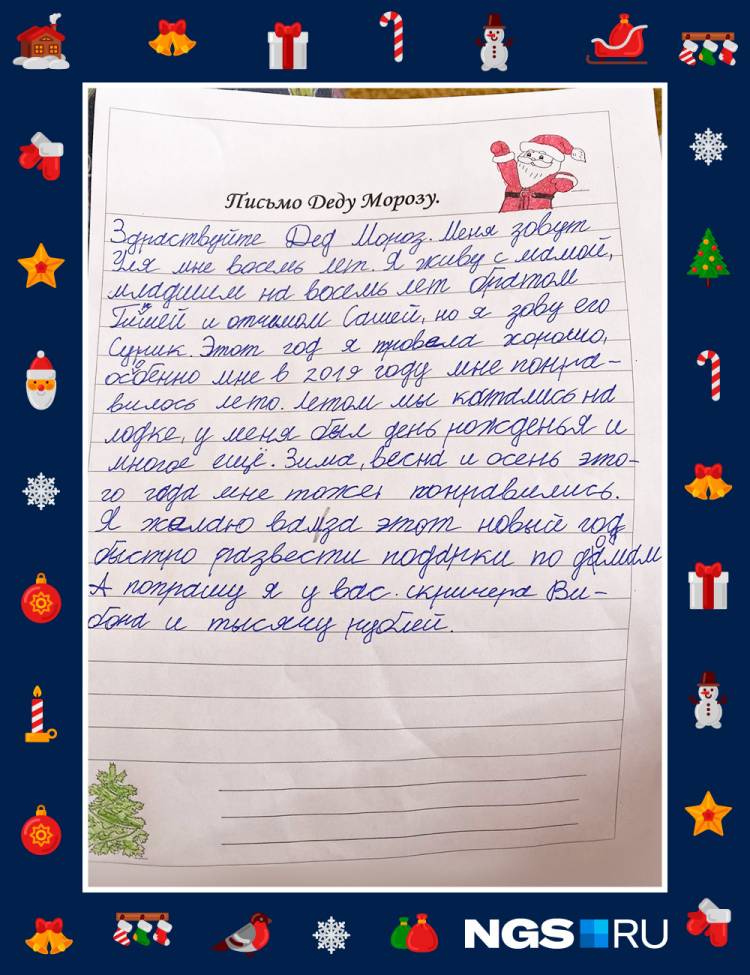 Письмо Деду Морозу.
Здраствуйте Дед Мороз. Меня зовут
Уля мне восемь лет. Я живу с мамой,
младшим на восемь лет братом
Тишей и отчимом Сашей, но я зову его
Сурик. Этот год я провела хорошо,
особенно мне в 2019 году мне понра-
вилось лето. Летом мы катались на
лодке, у меня был день рожденья и
многое ещё. Зима, весна и осень это-
го года мне тоже понравились.
Я желаю вам за этот новый год
быстро развести подарки по домам
А попрошу я у вас. скричера Ви-
бона и тысячу рублей.
NGS RU